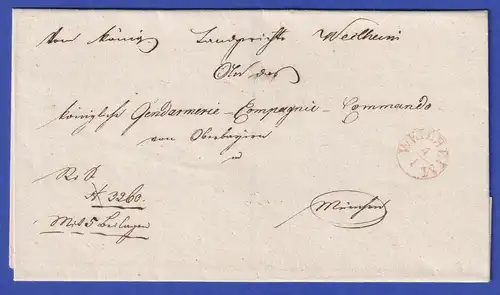 Vom königl Landgerichte Weilheim
An das
königliche Gendarmerie-Compagnie-Commando
von Oberbayern
in
WEILHEIM
4
1
R. S.
N 3260.
Mit 5 Beilagen
München